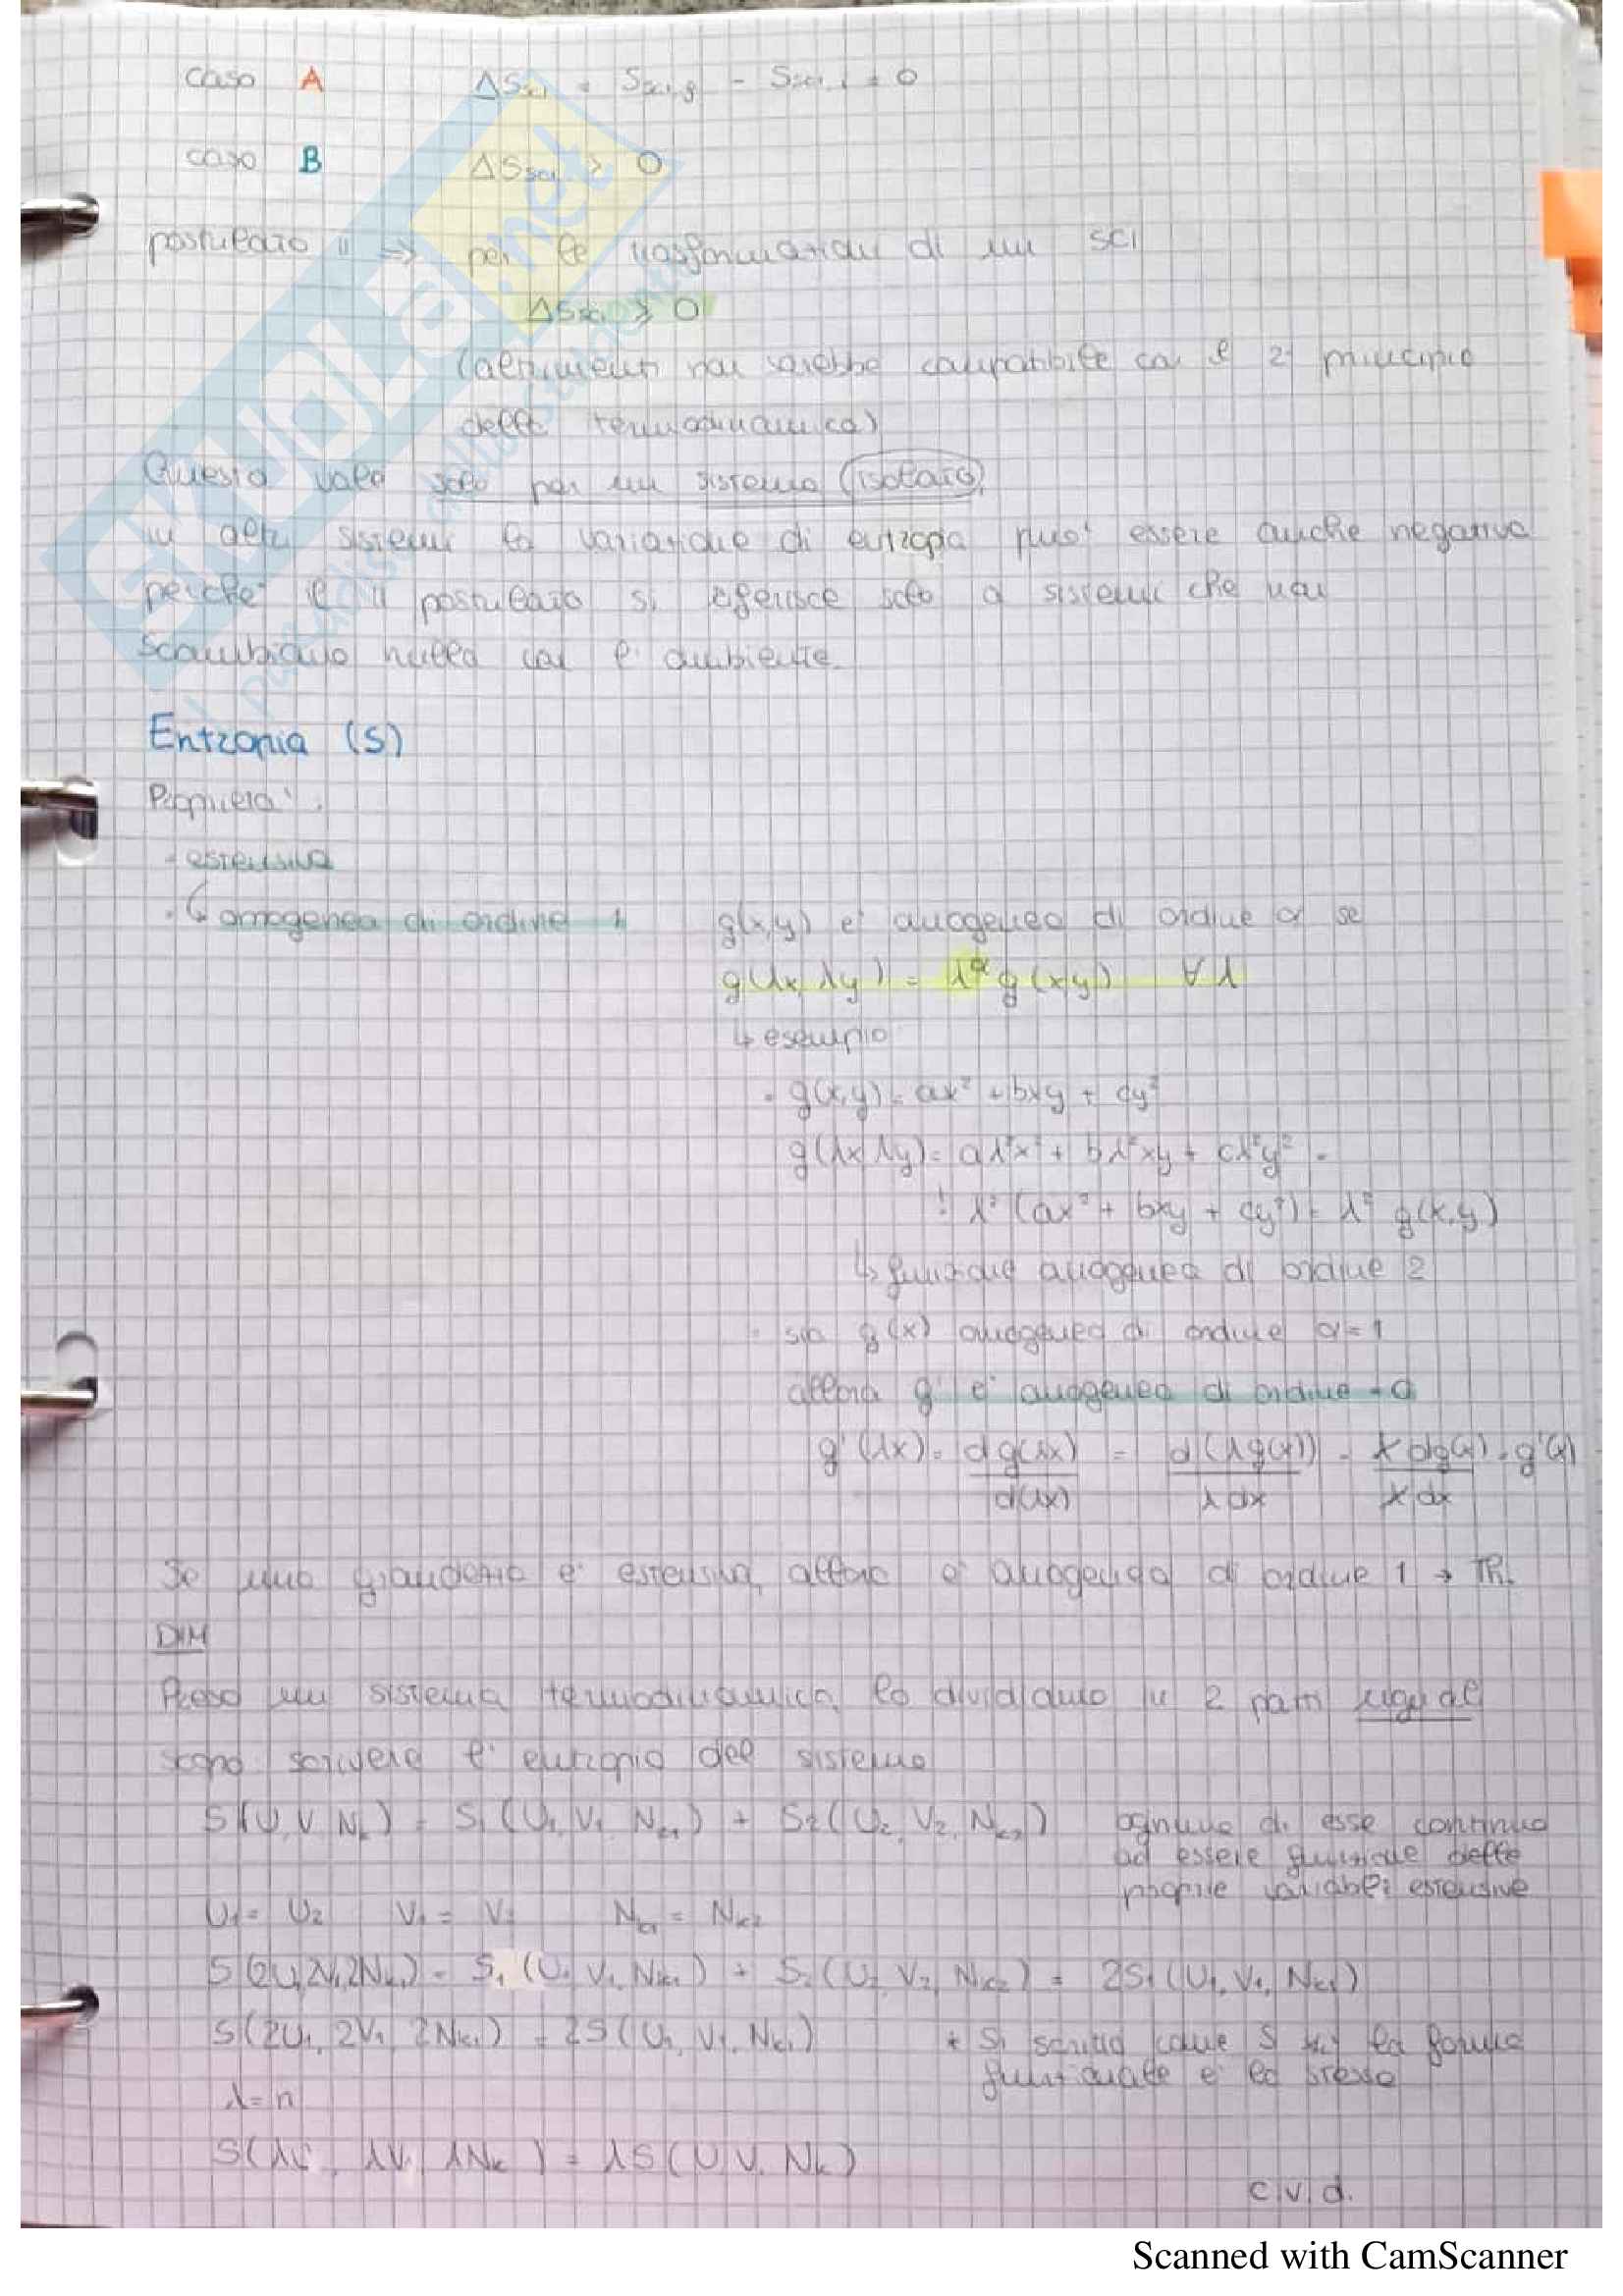 caso A ΔSsci = Ssci,f - Ssci,i = 0
caso B ΔSsci > 0
postulato II => per le trasformazioni di un SCI
ΔSsci ≥ 0
(altrimenti non sarebbe compatibile con il 2° principio
della termodinamica)
Questo vale solo per un sistema isolato,
in altri sistemi la variazione di entropia puo' essere anche negativa
perche' il II postulato si riferisce solo a sistemi che non
scambiano nulla con l'ambiente.
Entropia (S)
Proprieta':
- estensiva
↳ omogenea di ordine 1 g(x,y) e' omogenea di ordine α se
g(λx, λy) = λ^α g(x,y) ∀ λ
↳ esempio
• g(x,y) = ax² + bxy + cy²
g(λx,λy) = aλ²x² + bλ²xy + cλ²y² =
= λ² (ax² + bxy + cy²) = λ² g(x,y)
↳ funzione omogenea di ordine 2
• sia g(x) omogenea di ordine α=1
allora g' e' omogenea di ordine 0
g'(λx) = dg(λx)/d(λx) = d(λg(x))/λdx = λdg(x)/λdx = g'(x)
Se una grandezza e' estensiva, allora e' omogenea di ordine 1 → Th.
DIM
Preso un sistema termodinamico, lo dividiamo in 2 parti uguali
scrivere l'entropia del sistema
S(U,V,Nk) = S1(U1,V1,Nk1) + S2(U2,V2,Nk2) ognuna di esse continua
ad essere funzione delle
proprie variabili estensive
U1 = U2 V1 = V2 Nk1 = Nk2
S(2U1,2V1,2Nk1) = S1(U1,V1,Nk1) + S2(U2,V2,Nk2) = 2S1(U1,V1,Nk1)
S(2U1, 2V1, 2Nk1) = 2S(U1,V1,Nk1) * S1 scritto come S la forma
funzionale e' la stessa
λ=n
S(λU, λV, λNk) = λS(U,V,Nk)
c.v.d.
SKUOLA.net
Scanned with CamScanner